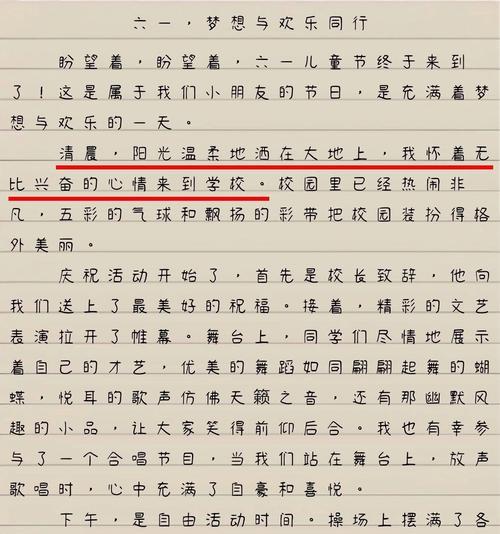 六一，梦想与欢乐同行
盼望着，盼望着，六一儿童节终于来到
了！这是属于我们小朋友的节日，是充满着梦
想与欢乐的一天。
清晨，阳光温柔地洒在大地上，我怀着无
比兴奋的心情来到学校。校园里已经热闹非
凡，五彩的气球和飘扬的彩带把校园装扮得格
外美丽。
庆祝活动开始了，首先是校长致辞，他向
我们送上了最美好的祝福。接着，精彩的文艺
表演拉开了帷幕。舞台上，同学们尽情地展示
着自己的才艺，优美的舞蹈如同翩翩起舞的蝴
蝶，悦耳的歌声仿佛天籁之音，还有那幽默风
趣的小品，让大家笑得前仰后合。我也有幸参
与了一个合唱节目，当我们站在舞台上，放声
歌唱时，心中充满了自豪和喜悦。
下午，是自由活动时间。操场上摆满了各